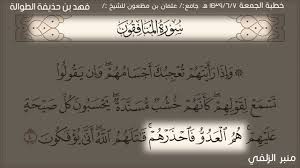 خطبة الجمعة ١٤٣٩/٦/٧ هـ جامع/ عثمان بن مظعون للشيخ / فهد بن حذيفة الطوالة
سورة المنافقون
وَإِذَا رَأَيْتَهُمْ تُعْجِبُكَ أَجْسَامُهُمْ وَإِن يَقُولُوا
تَسْمَعْ لِقَوْلِهِمْ كَأَنَّهُمْ خُشُبٌ مُّسَنَّدَةٌ يَحْسَبُونَ كُلَّ صَيْحَةٍ
عَلَيْهِمْ هُمُ الْعَدُوُّ فَاحْذَرْهُمْ قَاتَلَهُمُ اللَّهُ أَنَّى يُؤْفَكُونَ ٤
منبر الزلفي